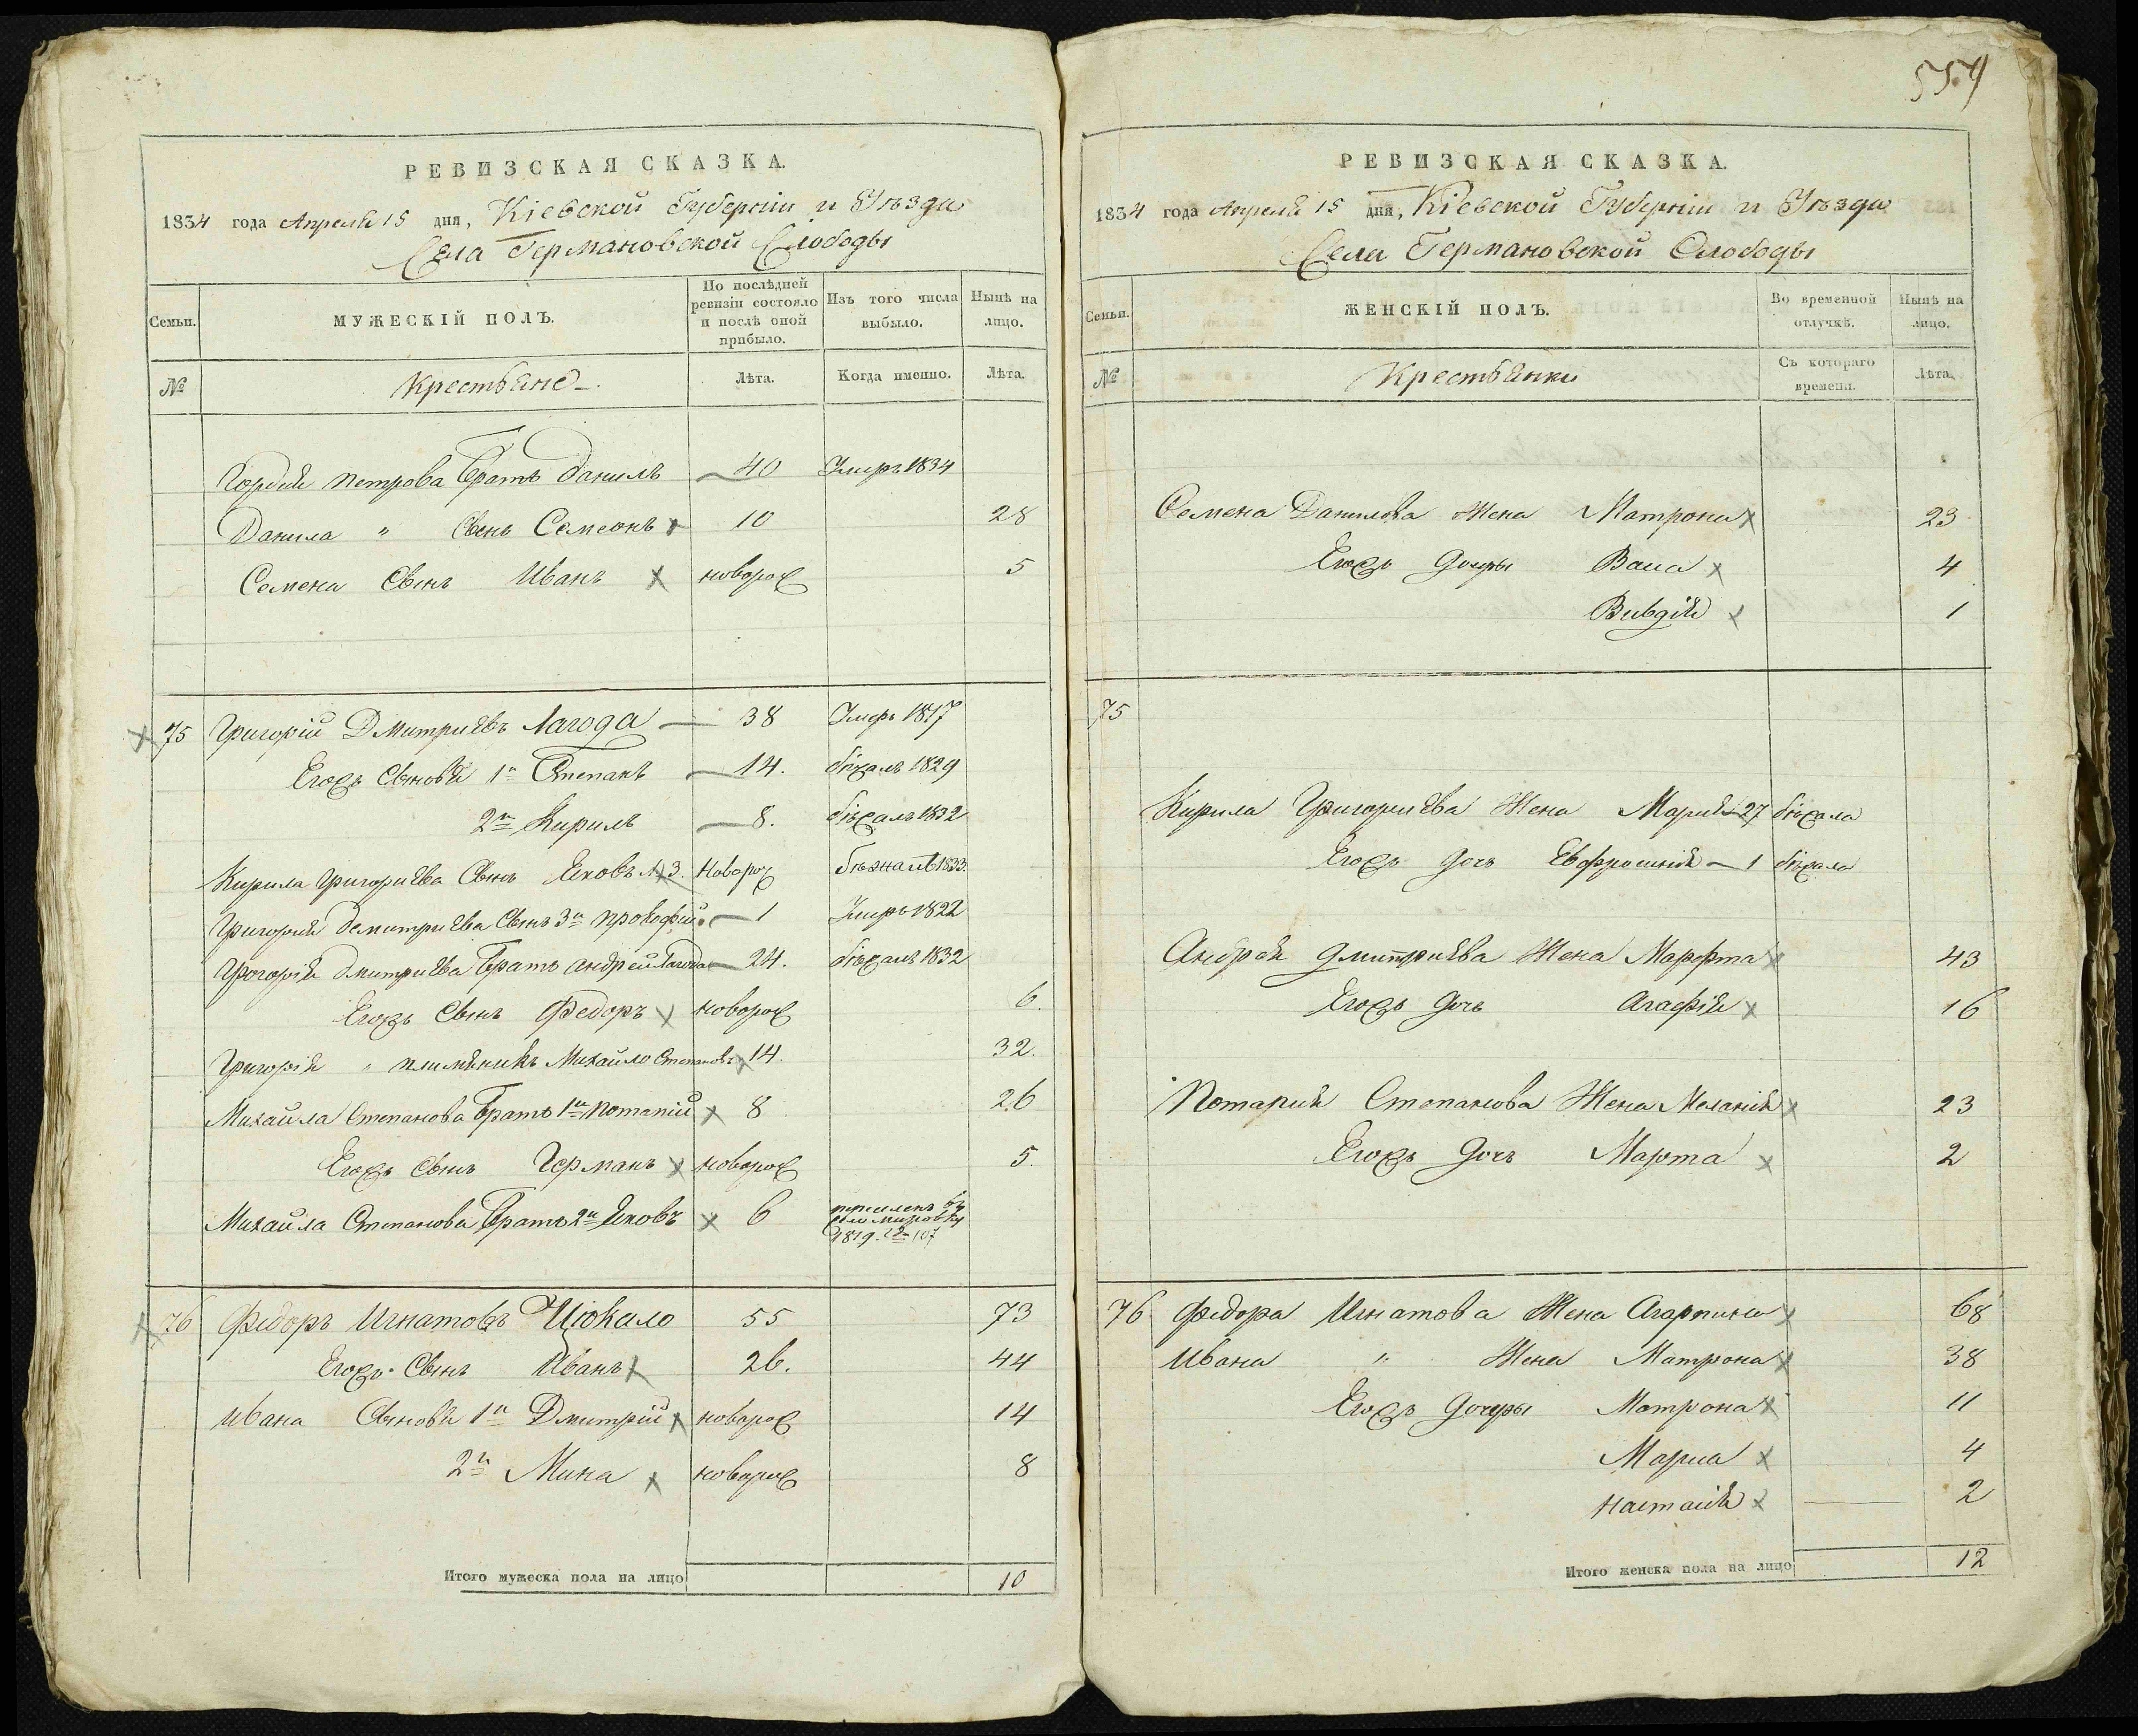 РЕВИЗСКАЯ СКАЗКА.
1834 года Апреля 15 дня, Кіевской Губерніи и Уѣзда
Села Германовской Слободы
Семьи.
МУЖЕСКІЙ ПОЛЪ.
По послѣдней ревизіи состояло и послѣ оной прибыло.
Изъ того числа выбыло.
Нынѣ на лицо.
№ Крестьяне Лѣта. Когда именно. Лѣта.
Гордія Петрова Братъ Данилъ 40 Умеръ 1834
Данила " Сынъ Семенъ х 10 28
Семена Сынъ Иванъ х новорож 5
75 Григорій Дмитріевъ Лагода 38 Умеръ 1817
Егожъ Сыновья 1й Степанъ 14. бѣжалъ 1829
2й Кирилъ 8. бѣжалъ 1832
Кирила Григоріева Сынъ Яковъ 3. Новорож бѣжалъ 1833.
Григорія Демитріева Сынъ 3й Прокофій 1 Умеръ 1822
Григорія Дмитріева Братъ Андрей Лагода 24. бѣжалъ 1832
Егожъ Сынъ Федоръ х новорож 6.
Григорія " племяникъ Михайло Степановъ х 14. 32.
Михайла Степанова Братъ 1й Потапій х 8 26
Егожъ Сынъ Германъ х новорож 5.
Михайла Степанова Братъ 2й Яковъ х 6
1819. 107
76 Федоръ Игнатовъ 55 73
Егожъ Сынъ Иванъ х 26. 44
Ивана Сыновья 1й Дмитрій х новорож 14
2й Мина х новорож 8
Итого мужеска пола на лицо 10
554
РЕВИЗСКАЯ СКАЗКА.
1834 года Апреля 15 дня, Кіевской Губерніи и Уѣзда
Села Германовской Слободы
Семьи.
ЖЕНСКІЙ ПОЛЪ.
Во временной отлучкѣ.
Нынѣ на лицо.
№ Крестьянки Съ котораго времени. Лѣта.
Семена Данилова Жена Матрона х 23
Егожъ дочеры Васа х 4
Вивдія х 1
75
Кирила Григоріева Жена Марія 27 бѣжала
Егожъ дочь Евфросинія 1 бѣжала
Андрея Дмитріева Жена Марфта х 43
Егожъ дочь Агафія х 16
Степанова Жена Меланія х 23
Егожъ дочь Марта х 2
76 Федора Игнатова Жена Агарпина х 68
Ивана " Жена Матрона х 38
Егожъ дочеры Матрона х 11
Мариа х 4
Настасія х 2
Итого женска пола на лицо 12